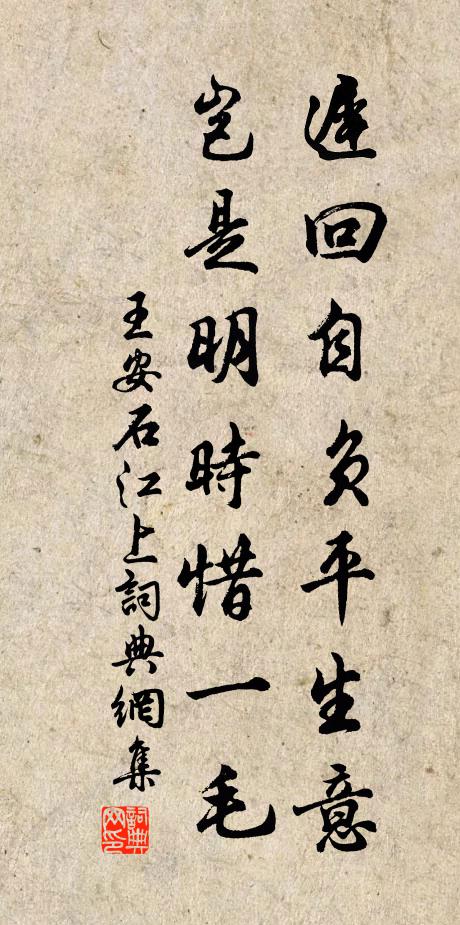 遲回自負平生意
豈是明時惜一毛
王安石江上詞典網集
詞典網印